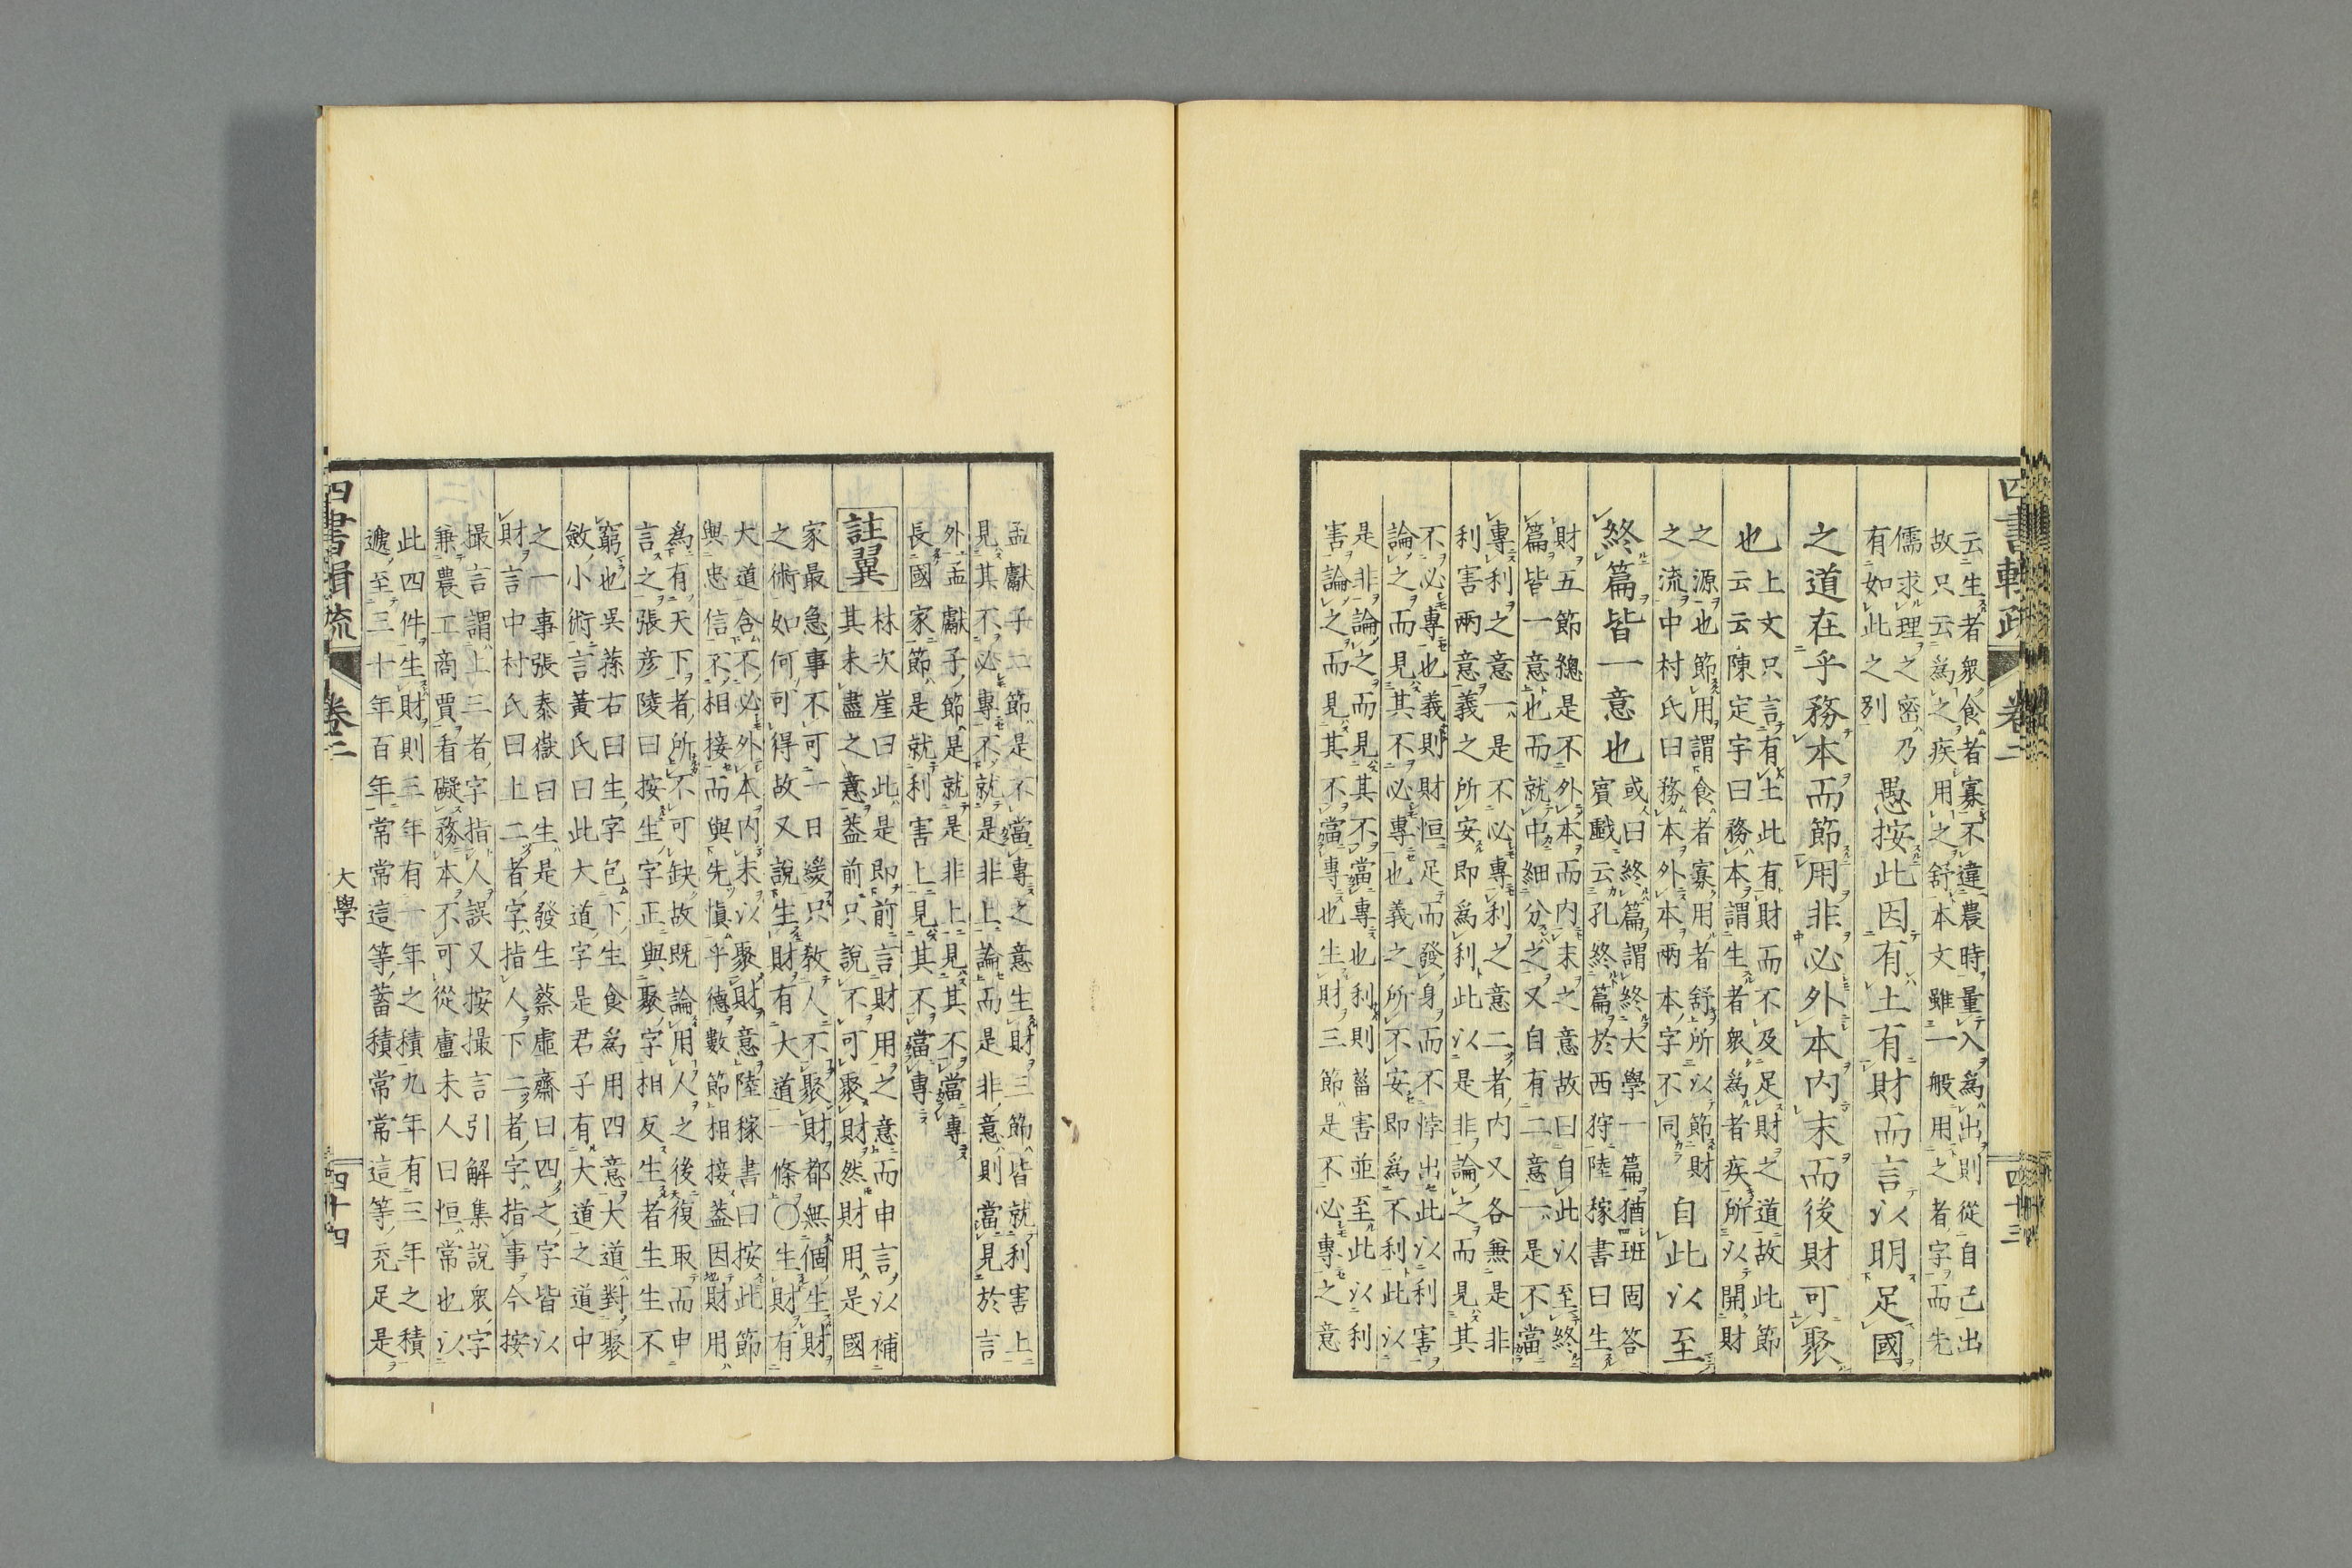 云生者衆食者寡不違農時量入為出則從自己出
故只云為之疾用之舒本文雖一般用之者字而先
儒求理之密乃
有如此之別
愚按此因有土有財而言以明足國
之道在乎務本而節用非必外本內末而後財可聚
也
上文只言有土此有財而不及足財之道故此節
云云陳定宇曰務本謂生者衆為者疾所以開財
之源也節用謂食者寡用者舒所以節財
之流中村氏曰務本外本兩本字不同
自此以至
終篇皆一意也
或曰終篇謂終大學一篇猶班固答
賓戲云孔終篇於西狩陸稼書曰生
財五節總是不外本而內末之意故曰自此以至終
篇皆一意也而就中細分之又自有二意一是不當
專利之意一是不必專利之意二者內又各兼是非
利害兩意義之所安即為利此以是非論之而見其
不必專也義則財恒足而發身而不悖出此以利害
論之而見其不必專也義之所不安即為不利此以
是非論之而見其不當專也利則菑害並至此以利
害論之而見其不當專也生財三節是不必專之意
四書輯疏 卷二 四十三
孟獻子二節是不當專之意生財三節皆就利害上
見其不必專不就是非上論而是非意則當見於言
外孟獻子節是就是非上見其不當專
長國家節是就利害上見其不當專
註翼
林次崖曰此是即前言財用之意而申言以補
其未盡之意蓋前只說不可聚財然財用是國
家最急事不可一日緩只教人不聚財都無個生財
之術如何可得故又說生財有大道一條○生財有
大道含不必外本內末以聚財意陸稼書曰按此節
與忠信不相接而與先慎乎德數節相接蓋因財用
為有天下者所不可缺故既論用人之後復取而申
言之張彥陵曰按生字正與聚字相反生者生生不
窮也吳蓀右曰生字包下生食為用四意大道對聚
斂小術言黃氏曰此大道字是君子有大道之道中
之一事張泰嶽曰生是發生蔡虛齋曰四之字皆以
財言中村氏曰上二者字指人下二者字指事今按
撮言謂上三者字指人誤又按撮言引解集說衆字
兼農工商賈看礙務本不可從盧未人曰恒常也以
此四件生財則三年有一年之積九年有三年之積
遞至三十年百年常常這等蓄積常常這等充足是
四書輯疏 卷二 大學 四十四